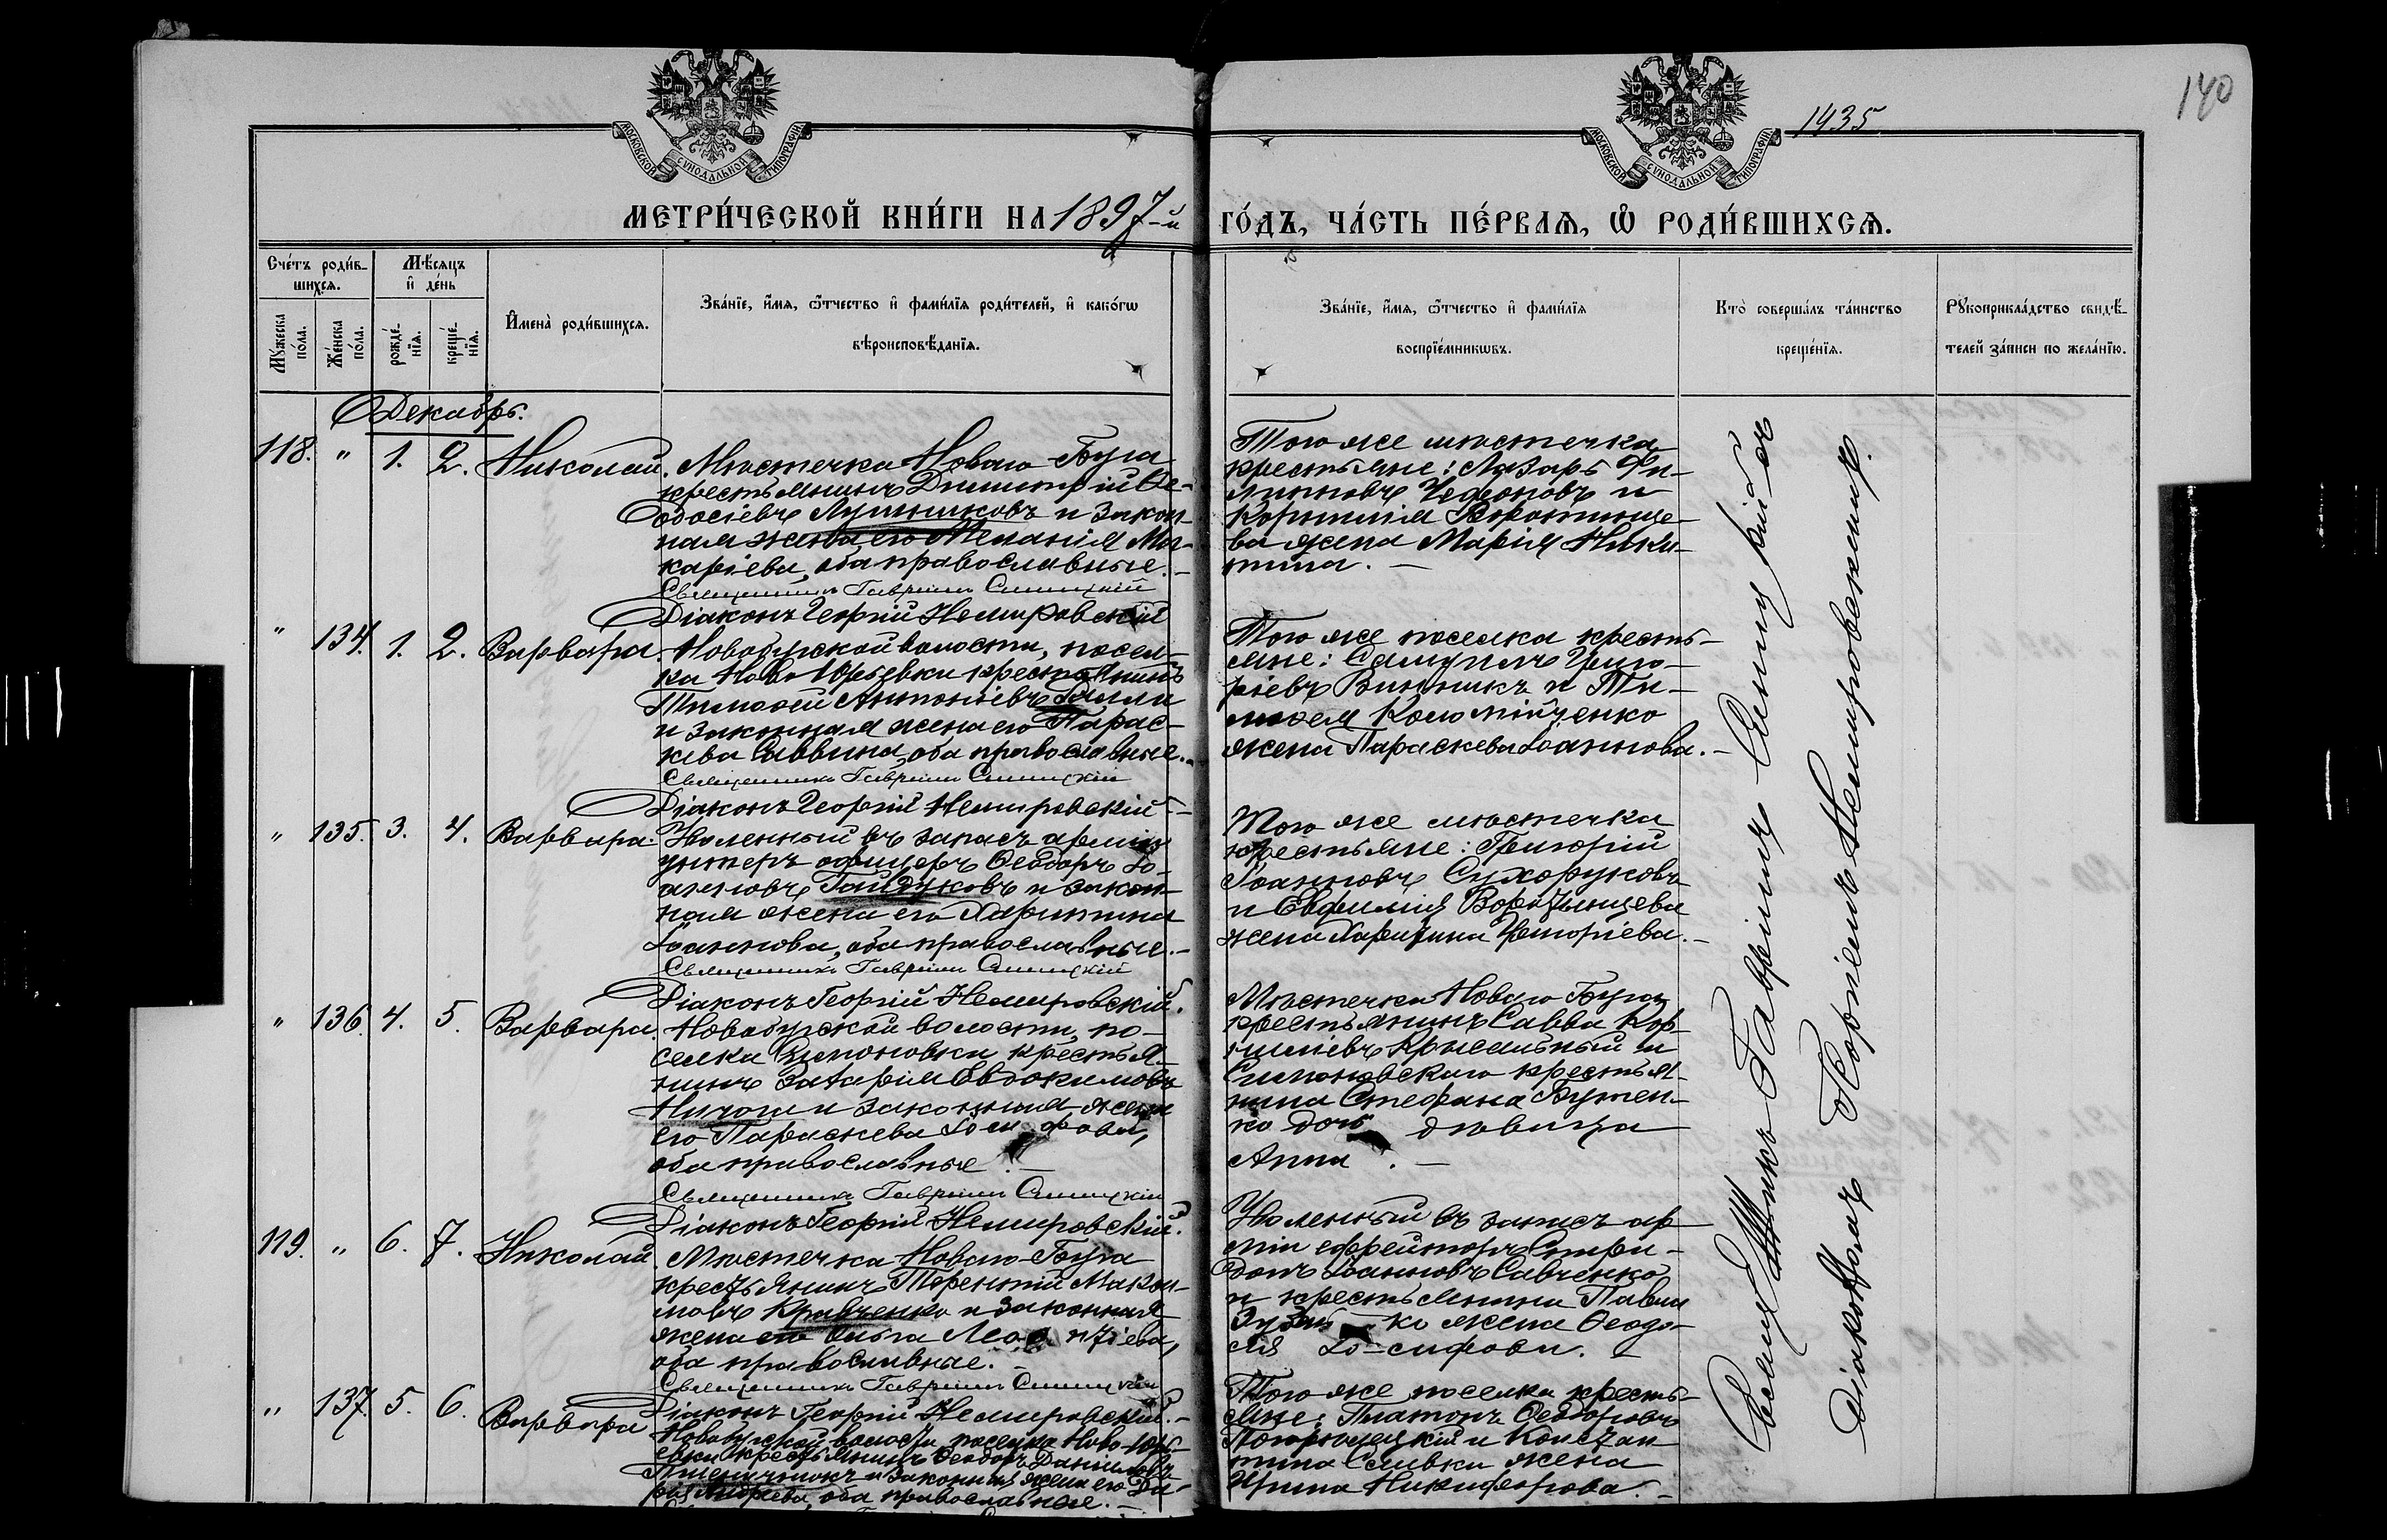 140
1435
МОСКОВСКОЙ СѴНОДАЛЬНОЙ ТИПОГРАФІИ.
МОСКОВСКОЙ СѴНОДАЛЬНОЙ ТИПОГРАФІИ.
МЕТРИ́ЧЕСКОЙ КНИ́ГИ НА 1897-й ГО́ДЪ, ЧА́СТЬ ПЕ́РВАѦ, Ѡ РОДИ́ВШИХСѦ.
Сче́тъ роди́в-
шихсѧ.
Мꙋ́жеска по́ла.
Же́нска по́ла.
Мѣ́сѧцъ
и҆ де́нь
рожде́-
нїѧ.
креще́-
нїѧ.
И҆мена̀ роди́вшихсѧ.
Зва́нїе, и҆́мѧ, ѻ҆́тчество и҆ фами́лїѧ роди́телей, и҆ како́гѡ
вѣроисповѣ́данїѧ.
Зва́нїе, и҆́мѧ, ѻ҆́тчество и҆ фами́лїѧ
воспрїе́мникѡвъ.
Кто̀ соверша́лъ та́инство
креще́нїѧ.
Рꙋкоприкла́дство свидѣ́-
телей за́писи по жела́нїю.
Декабрь.
118. " 1. 2. Николай.
Мѣстечка Новаго Буга
крестьянинъ Димитрій Ѳе-
одосіевъ Лутишковъ и закон-
ная жена его Меланія Ма-
каріева, оба православные.-
Священникъ Гавріилъ Синицкій
Діаконъ Георгій Немировскій
Того же мѣстечка
крестьяне: Лазарь Фи-
липповъ Чефоновъ и
Корнилія Воротынце-
ва жена Марія Ники-
тина. -
" 134. 1. 2. Варвара.
Новобугской волости, посел-
ка Ново Юрьевки крестьянинъ
Тимоѳей Антоніевъ
и законная жена его Парас-
кева Саввина, оба православные.-
Священникъ Гавріилъ Синицкій
Діаконъ Георгій Немировскій-
Того же поселка кресть-
яне: Самуилъ Григо-
ріевъ Винникъ и Ти-
моѳея Коломійченко
жена Параскева Іоаннова.-
" 135. 3. 4. Варвара.
Уволенный въ запасъ арміи
унтеръ офицеръ Ѳеодоръ Іо-
анновъ Гайдуковъ и закон-
ная жена его Харитина
Іоаннова, оба православные.-
Священникъ Гавріилъ Синицкій
Діаконъ Георгій Немировскій.
Того же мѣстечка
крестьяне: Григорій
Іоанновъ Сухоруковъ
и Евфимія Воротынцева
жена Харитина Григоріева.-
" 136. 4. 5. Варвара.
Новобугской волости, по-
селка Симоновки крестья-
нинъ Захарія Евдокимовъ
Ничога и законная жена
его Параскева Іосифова,
оба православные. -
Священникъ Гавріилъ Синицкій
Діаконъ Георгій Немировскій.
Мѣстечка Новаго Буга
крестьянинъ Савва Кор-
ниліевъ Крысальный и
Симоновскаго крестья-
нина Стефана Бутен-
ко дочь дѣвица
Анна. -
119. " 6. 7. Николай
Мѣстечка Новаго Буга
крестьянинъ Терентій Макси-
мовъ Кравченко и законная
жена его Ольга Леонтіева,
оба православные. -
Священникъ Гавріилъ Синицкій
Діаконъ Георгій Немировскій.-
Уволенный въ запасъ ар-
міи ефрейторъ Спири-
донъ Іоанновъ Савченко
и крестьянина Павла
жена Ѳеодо-
сія Іосифова. -
" 137. 5. 6. Варвара
Новобугской волости поселка Ново-Юрь-
евки крестьянинъ Ѳеодоръ Даніиловъ
Пшеничникъ и законная жена его Да-
рія Андреева, оба православные. -
Того же поселка кресть-
яне: Платонъ Ѳеодоровъ
Погорѣлецкій и Констан-
тина Сливки жена
Ирина Никифорова. -
Священникъ Гавріилъ Синицкій съ
діакономъ Георгіемъ Немировскимъ.